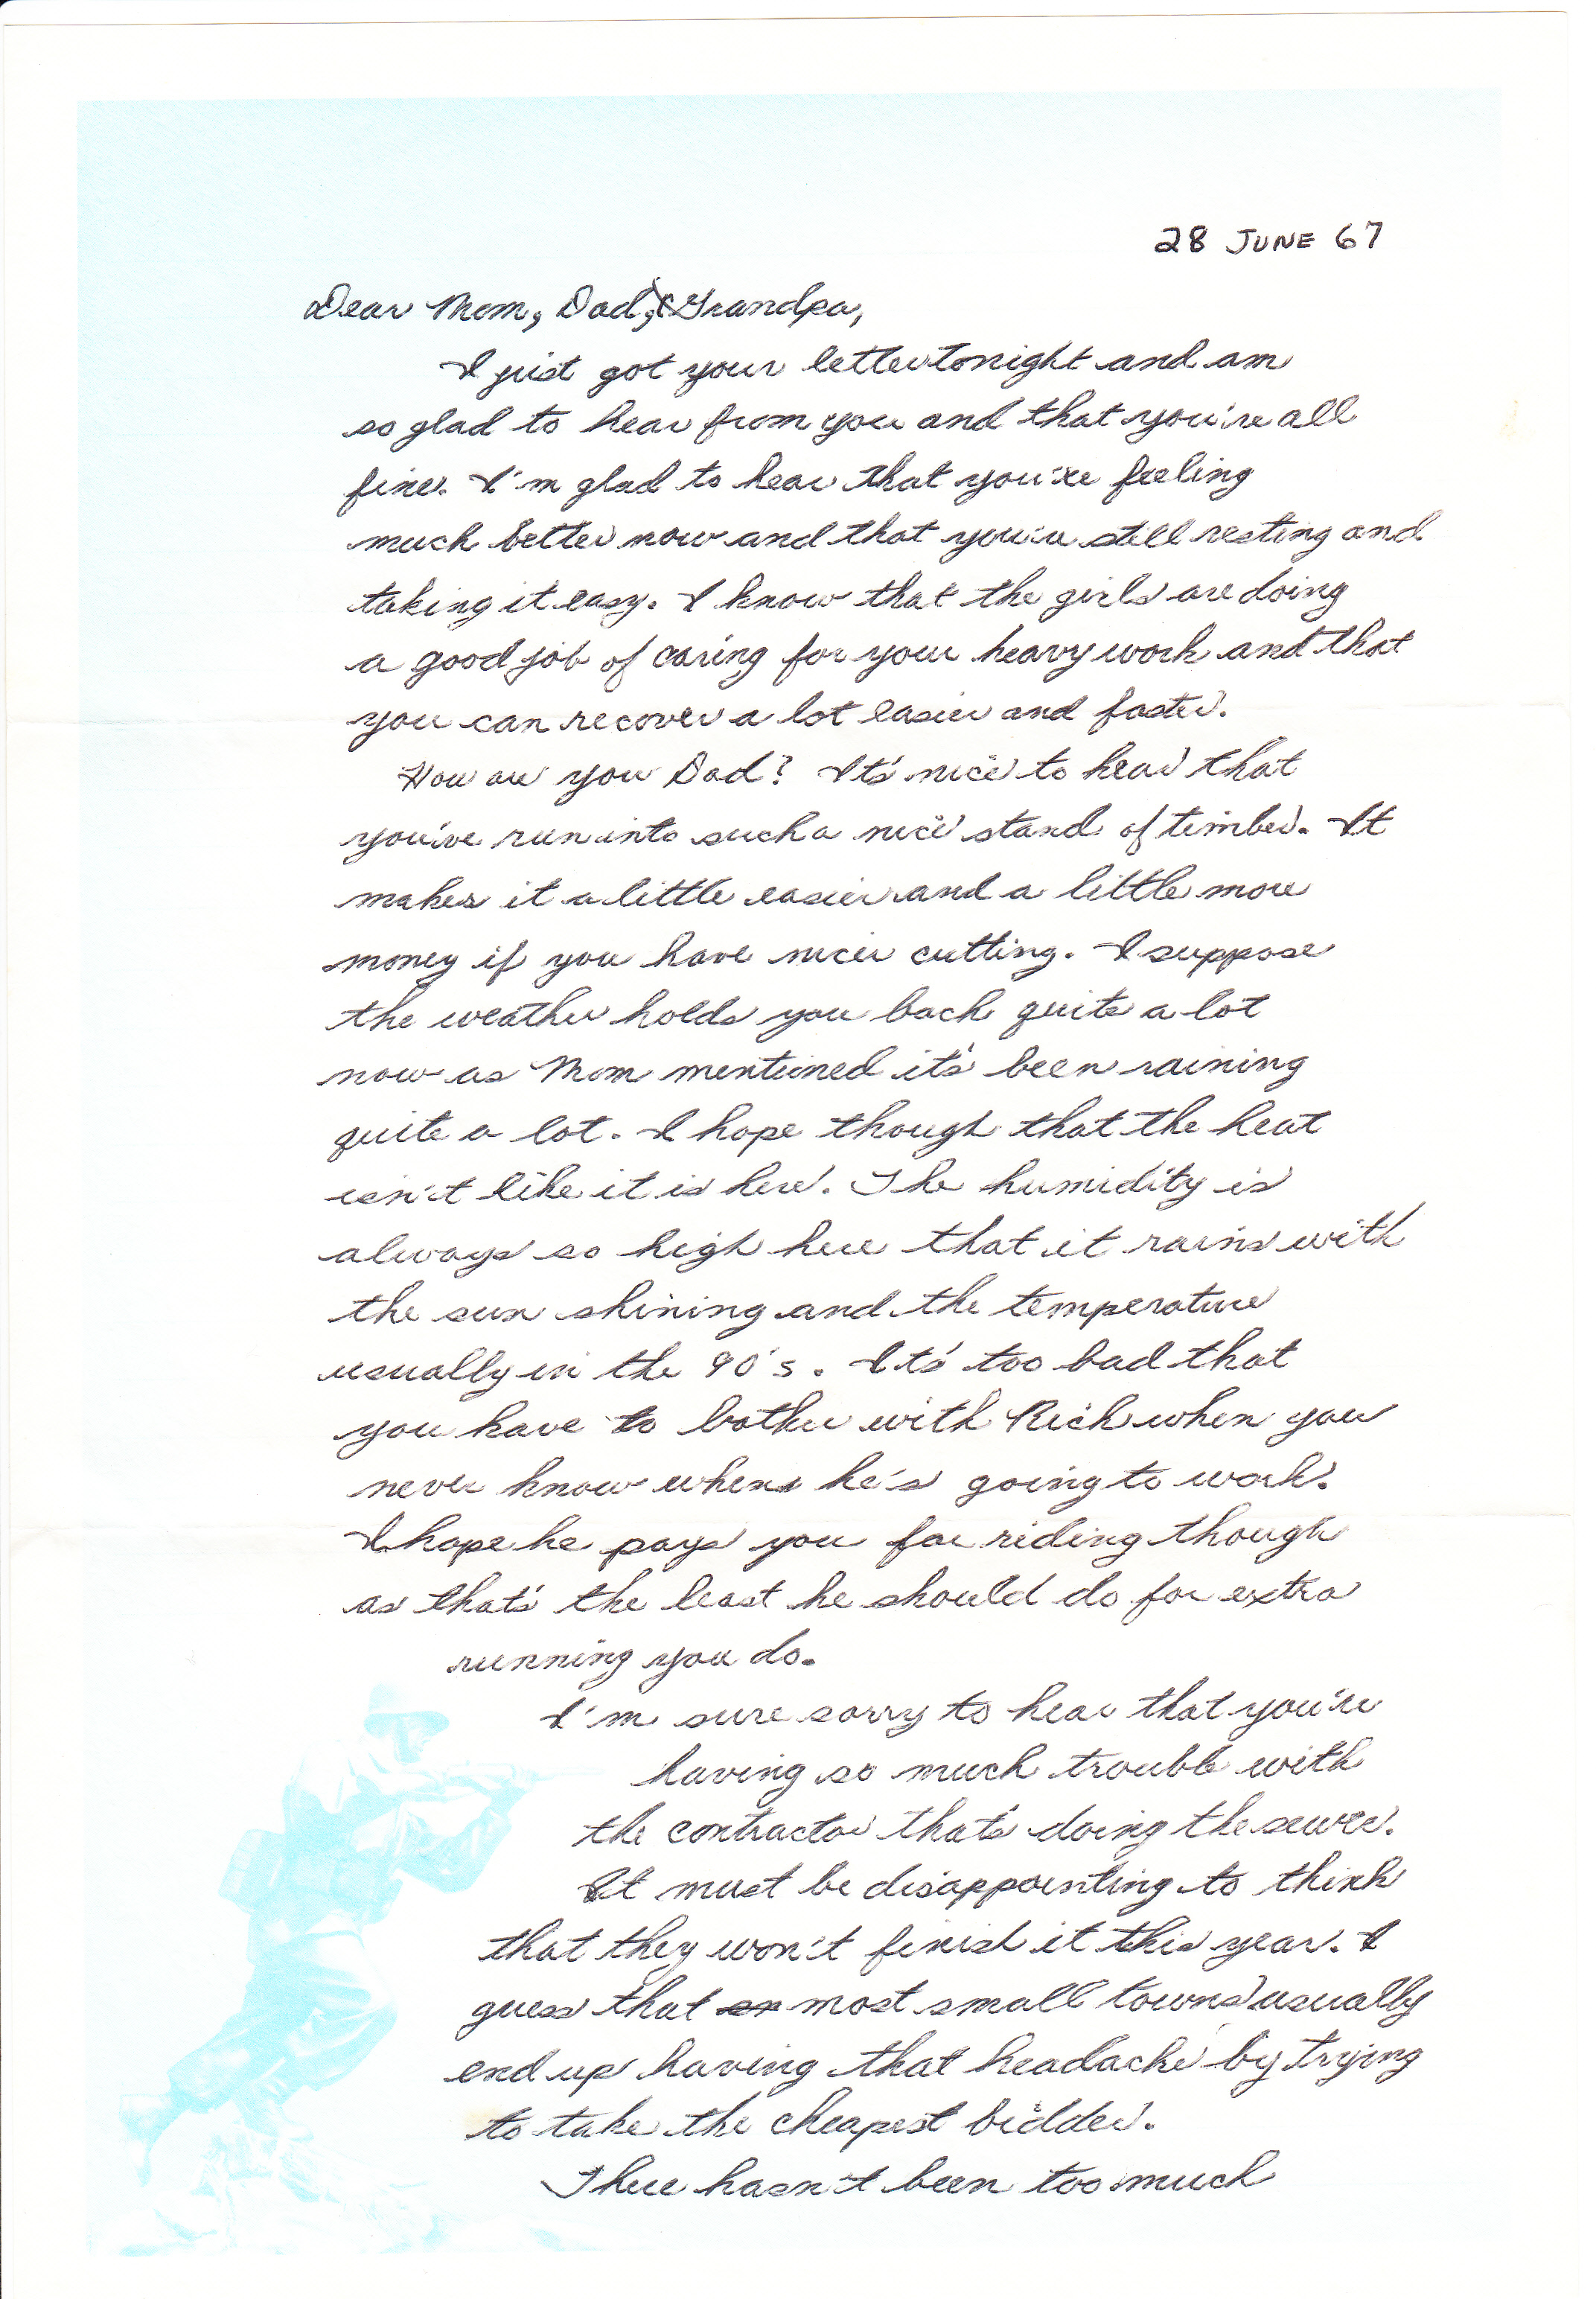 28 JUNE 67
Dear Mom, Dad, & Grandpa,
I just got your letter tonight and am
so glad to hear from you and that you're all
fine. I'm glad to hear that you're feeling
much better now and that you're still resting and
taking it easy. I know that the girls are doing
a good job of caring for your heavy work and that
you can recover a lot easier and faster.
How are you Dad? It's nice to hear that
you've run into such a nice stand of timber. It
makes it a little easier and a little more
money if you have nicer cutting. I suppose
the weather holds you back quite a lot
now as Mom mentioned it's been raining
quite a lot. I hope though that the heat
isn't like it is here. The humidity is
always so high here that it rains with
the sun shining and the temperature
usually in the 90's. It's too bad that
you have to bother with Rich when you
never know when he's going to work.
I hope he pays you for riding though
as that's the least he should do for extra
running you do.
I'm sure sorry to hear that you're
having so much trouble with
the contractor that's doing the sewer.
It must be disappointing to think
that they won't finish it this year. I
guess that most small towns usually
end up having that headache by trying
to take the cheapest bidder.
There hasn't been too much